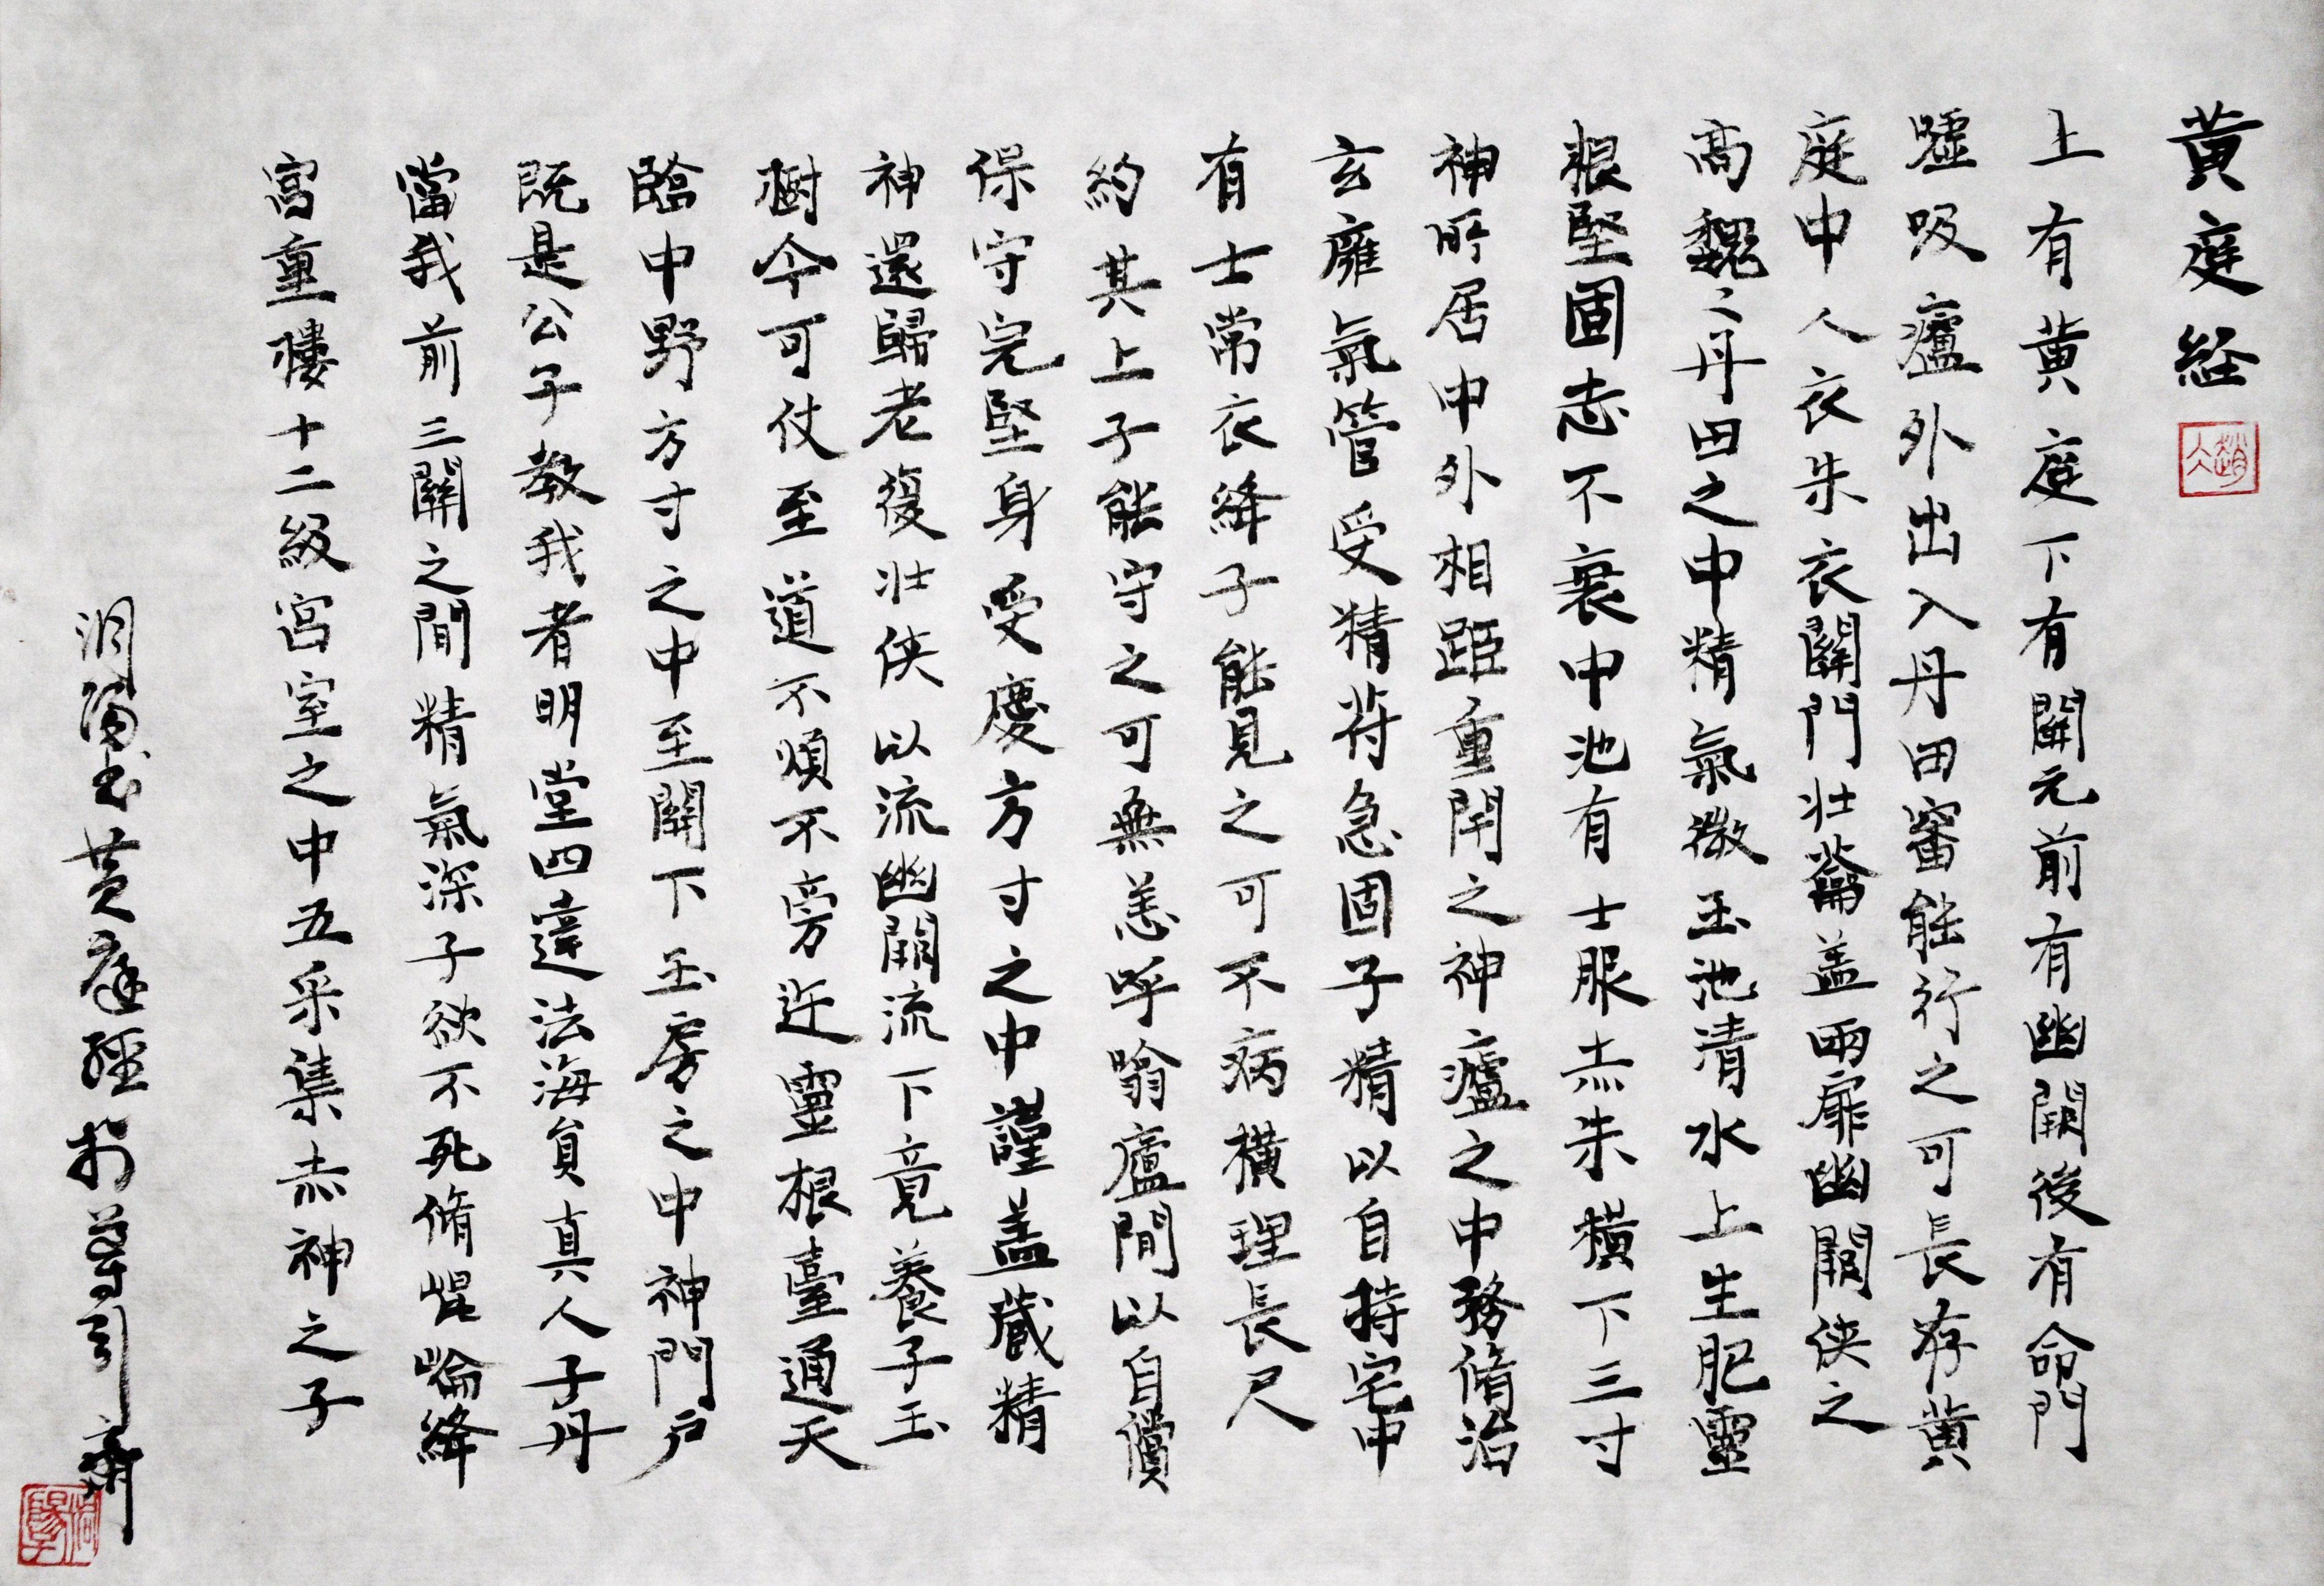 黃庭経
上有黃庭下有關元前有幽闕後有命門
嘘吸廬外出入丹田審能行之可長存黃
庭中人衣朱衣關門壯蘥盖兩扉幽闕俠之
高巍〻丹田之中精氣微玉池清水上生肥靈
根堅固志不衰中池有士服赤朱橫下三寸
神所居中外相距重閇之神廬之中務脩治
玄廱氣管受精符急固子精以自持宅中
有士常衣絳子能見之可不病橫理長尺
約其上子能守之可無恙呼噏廬間以自償
保守完堅身受慶方寸之中謹盖藏精
神還歸老復壯俠以流幽闕流下竟養子玉
樹令可仗至道不煩不旁迕靈根臺通天
臨中野方寸之中至關下玉房之中神門户
既是公子教我者明堂四達法海員真人子丹
當我前三關之間精氣深子欲不死脩崐崘絳
宮重樓十二級宮室之中五采集赤神之子
洞陽書黃庭經於尊引齋